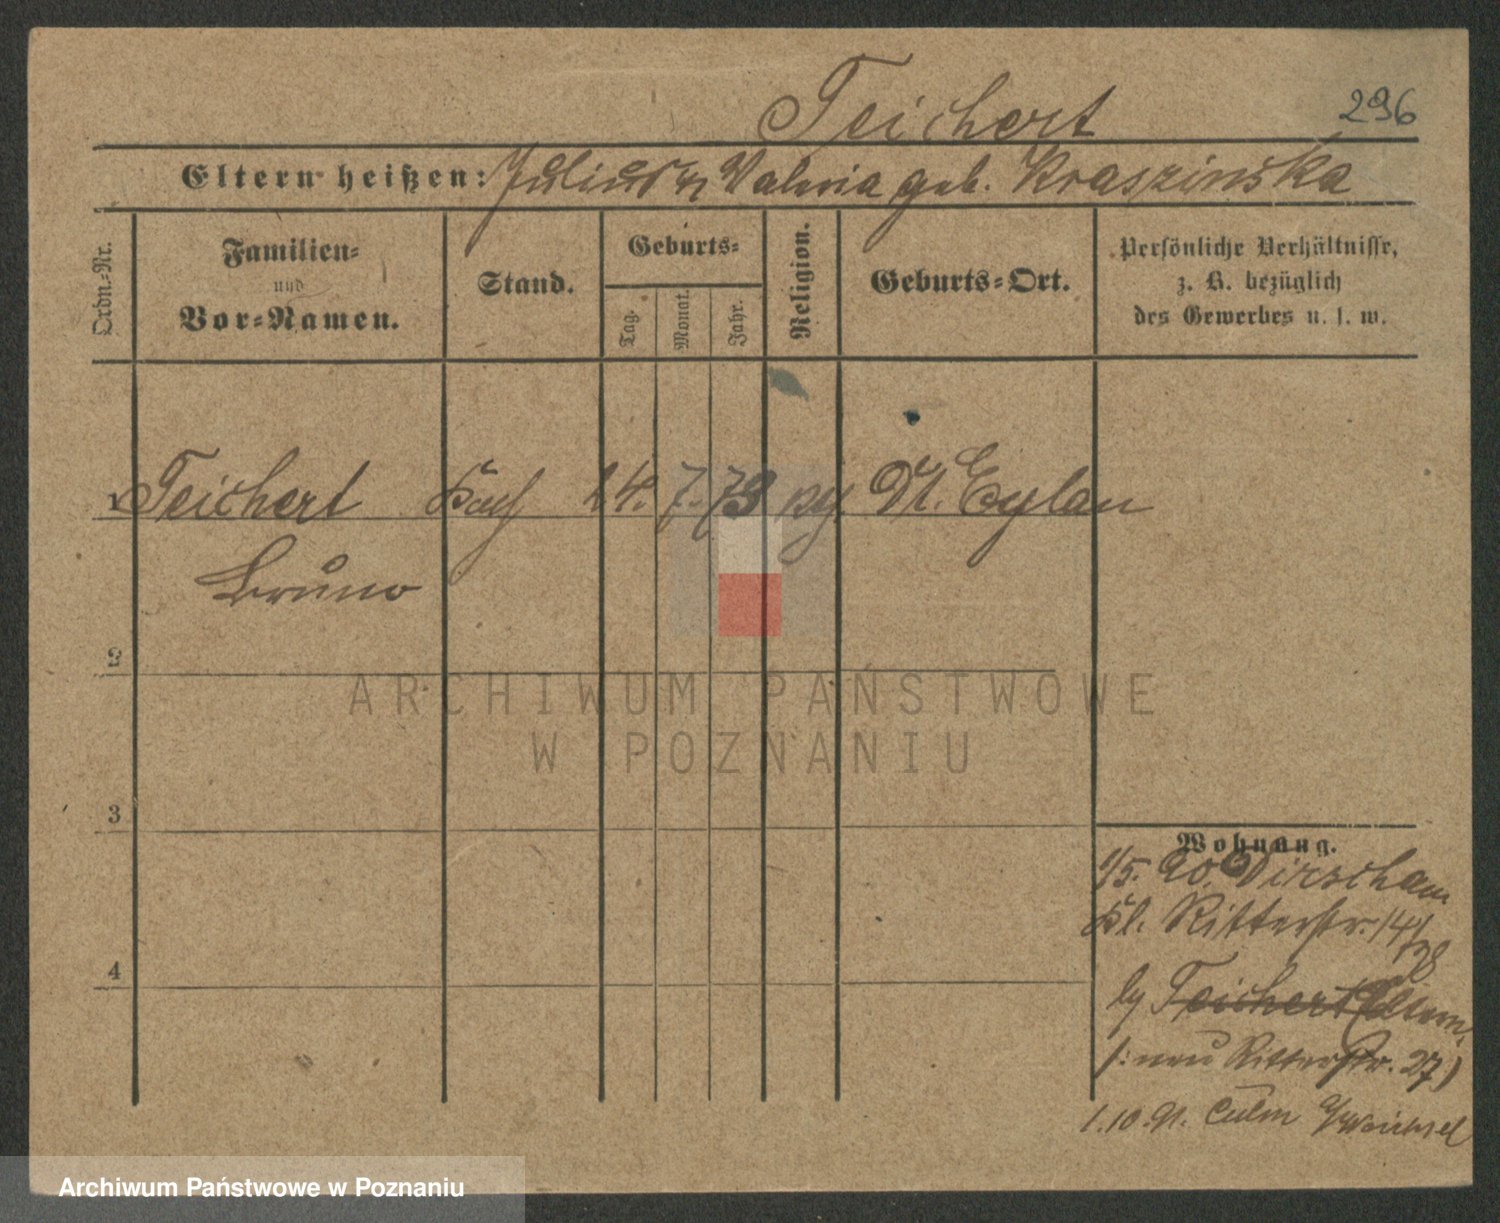 296
Teichert
Eltern heißen: Julius u. Valeria geb. Kraszinska
Ordn.-Nr.
Familien-
und
Vor-Namen.
Stand.
Geburts-
Tag.
Monat.
Jahr.
Religion.
Geburts-Ort.
Persönliche Verhältnisse,
z. B. bezüglich
des Gewerbes u. s. w.
1 Teichert 24. 7. 79 Dt. Eylau
Bruno
2
3
4
ARCHIWUM PAŃSTWOWE
W POZNANIU
Wohnung.
1/5. 90. Dirschau
Kl. Ritterstr. 14/
Teichert (Eltern
(: neu Ritterstr. 27)
1.10.91. Culm Weichsel
Archiwum Państwowe w Poznaniu